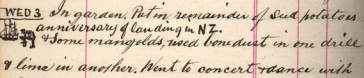 WED 3 In garden. Put in remainder of seed potatoes
anniversary of landing in NZ.
& Some mangolds, used bonedust in one drill
& lime in another. Went to concert & dance with